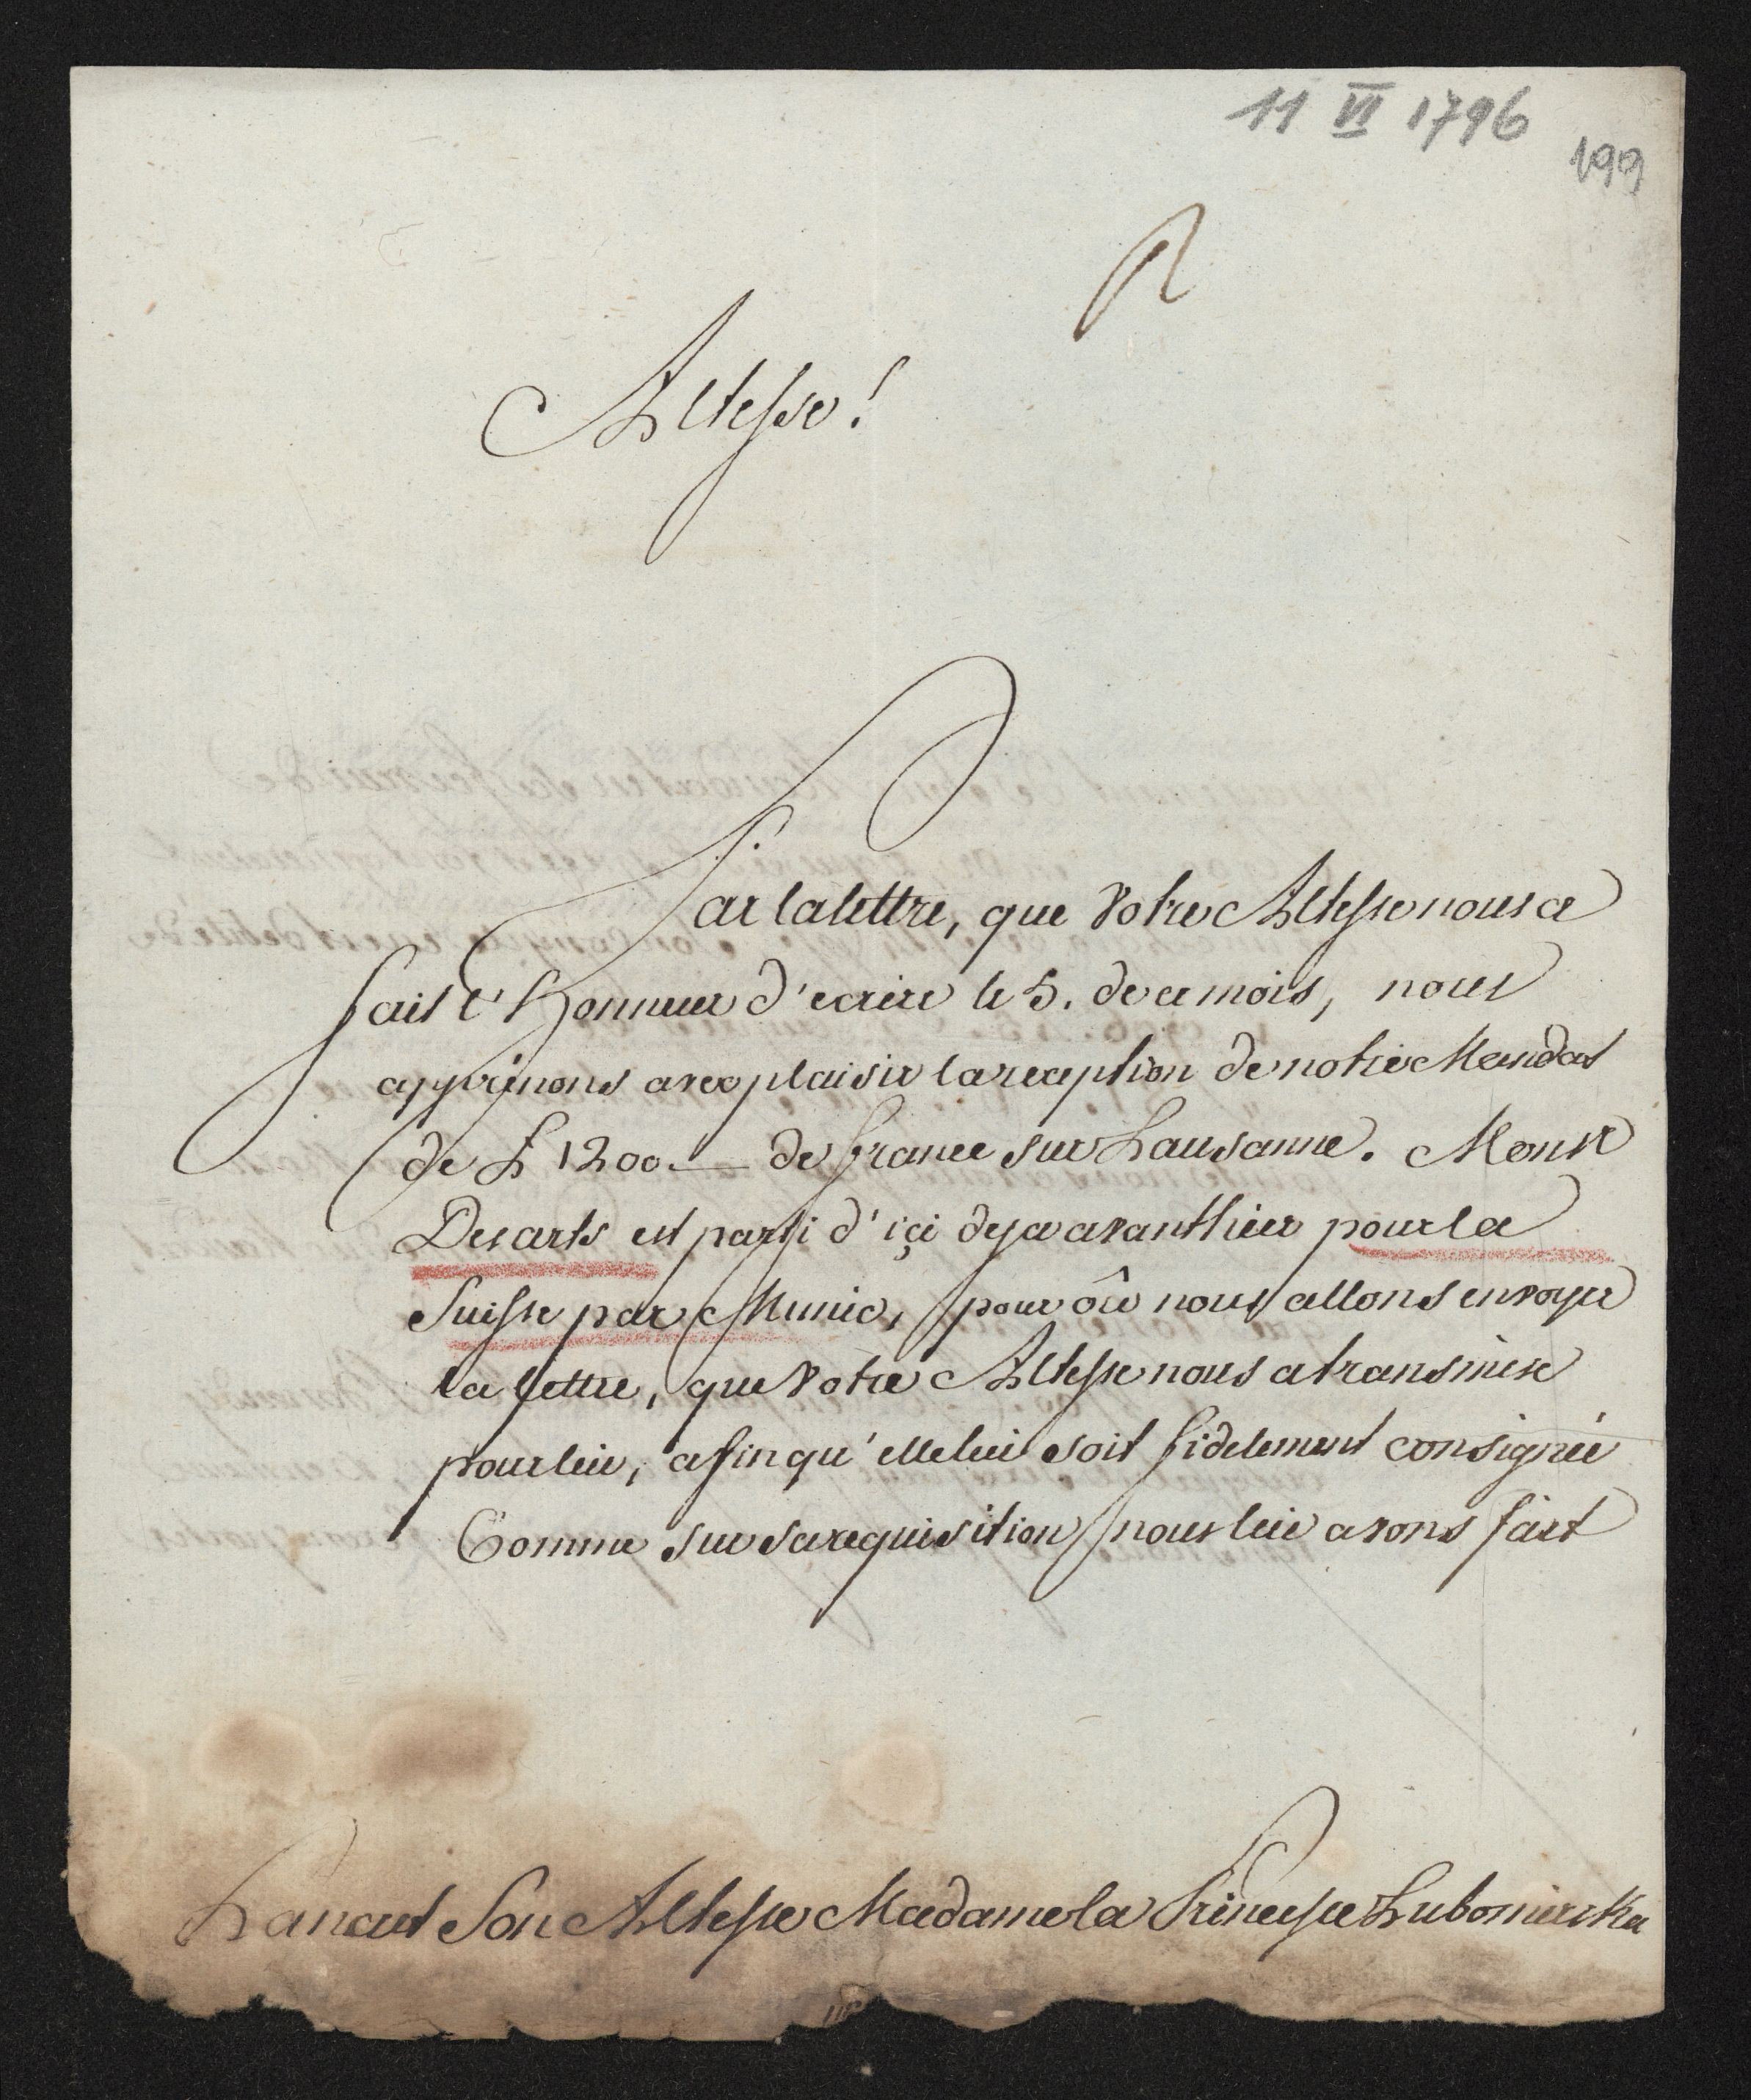 11 VI 1796
199
Altesse!
Par la lettre, que Votre Altesse nous a
fait l'Honneur d'ecrire le 5. de ce mois, nous
apprenons avec plaisir la reception de notre Mandat
de £ 1200.— de france sur Lausanne. Monsr
Desarts est parti d'içi deja avanthier pour la
Suisse par Munic, pour où nous allons envoyer
la lettre, que Votre Altesse nous a transmise
pour lui, afin qu'elle lui soit fidelement consignée
Comme sur sa requisition nous lui avons fait
Lancut Son Altesse Madame la Princesse Lubomirska